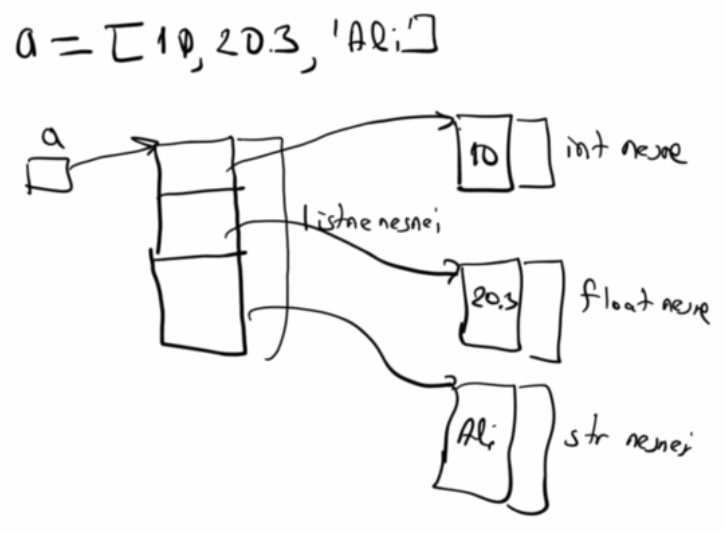 a = [10, 20.3, 'Ali']
a
10
int nesne
liste nesnesi
20.3
float nesne
Ali
str nesnesi